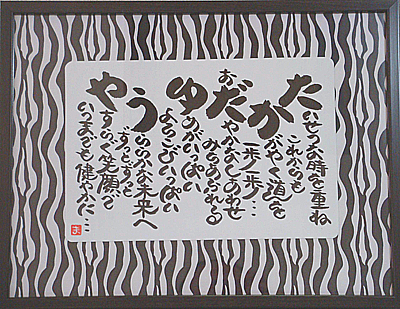 たいせつな時を重ね
これからも
かがやく道を
一歩一歩…
おだやかなしあわせ
みちあふれる
ゆめがいっぱい
よろこびいっぱい
うららかな未来へ
ずっとずっと
やすらぐ笑顔で
いつまでも健やかに…